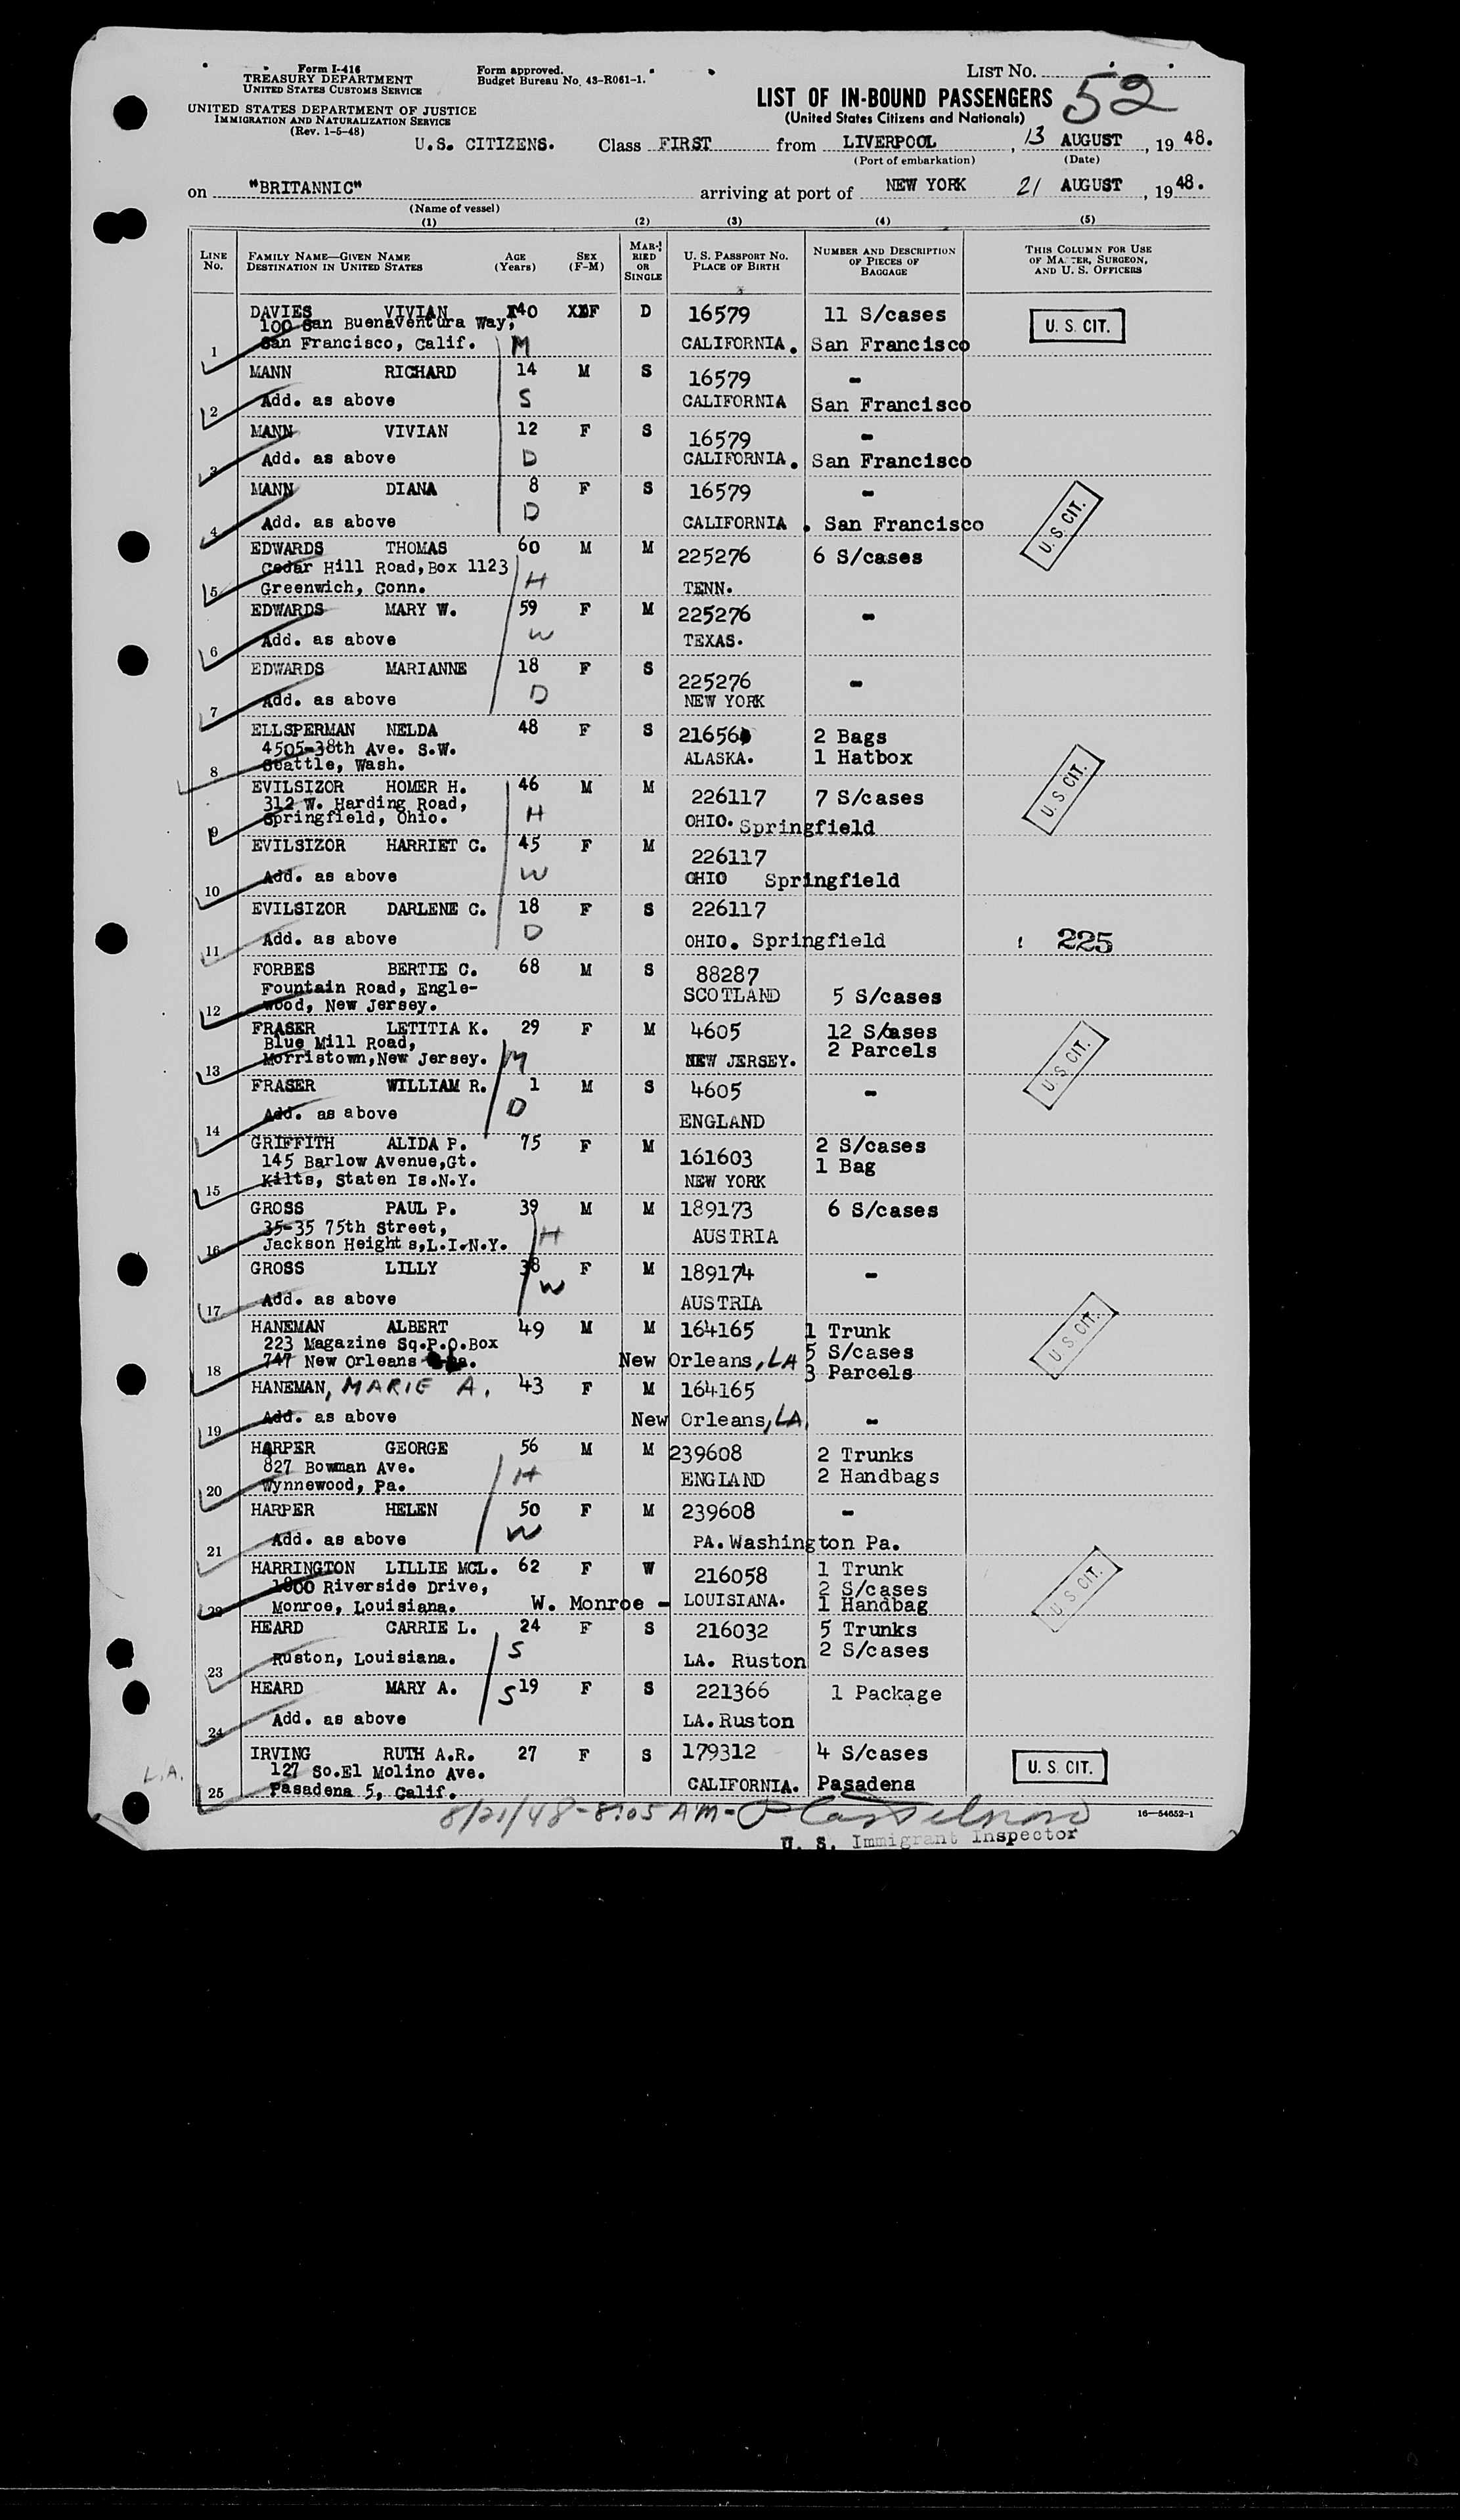 Form I-416
TREASURY DEPARTMENT
UNITED STATES CUSTOMS SERVICE
Form approved.
Budget Bureau No. 43-R061-1.
LIST NO. 52
UNITED STATES DEPARTMENT OF JUSTICE
IMMIGRATION AND NATURALIZATION SERVICE
(Rev. 1-5-48)
LIST OF IN-BOUND PASSENGERS
(United States Citizens and Nationals)
U.S. CITIZENS. Class FIRST from LIVERPOOL, 13 AUGUST, 1948.
(Port of embarkation) (Date)
on "BRITANNIC" arriving at port of NEW YORK 21 AUGUST, 1948.
(Name of vessel)
(1) (2) (3) (4) (5)
LINE No. FAMILY NAME—GIVEN NAME DESTINATION IN UNITED STATES AGE (Years) SEX (F-M) MARRIED OR SINGLE U. S. PASSPORT No. PLACE OF BIRTH NUMBER AND DESCRIPTION OF PIECES OF BAGGAGE THIS COLUMN FOR USE OF MASTER, SURGEON, AND U. S. OFFICERS
DAVIES VIVIAN 40 F D 16579 11 S/cases U. S. CIT.
100 San Buenaventura Way,
1 San Francisco, Calif. M CALIFORNIA. San Francisco
MANN RICHARD 14 M S 16579 -
2 Add. as above S CALIFORNIA San Francisco
MANN VIVIAN 12 F S 16579 -
3 Add. as above D CALIFORNIA. San Francisco
MANN DIANA 8 F S 16579 -
4 Add. as above D CALIFORNIA. San Francisco U. S. CIT.
EDWARDS THOMAS 60 M M 225276 6 S/cases
Cedar Hill Road, Box 1123
5 Greenwich, Conn. H TENN.
EDWARDS MARY W. 59 F M 225276 -
6 Add. as above W TEXAS.
EDWARDS MARIANNE 18 F S 225276 -
7 Add. as above D NEW YORK
ELLSPERMAN NELDA 48 F S 21656 2 Bags
4505-38th Ave. S.W.
8 Seattle, Wash. ALASKA. 1 Hatbox
EVILSIZOR HOMER H. 46 M M 226117 7 S/cases U. S. CIT.
312 W. Harding Road,
9 Springfield, Ohio. H OHIO. Springfield
EVILSIZOR HARRIET C. 45 F M 226117
10 Add. as above W OHIO Springfield
EVILSIZOR DARLENE C. 18 F S 226117
11 Add. as above D OHIO. Springfield 225
FORBES BERTIE C. 68 M S 88287
Fountain Road, Engle-
12 wood, New Jersey. SCOTLAND 5 S/cases
FRASER LETITIA K. 29 F M 4605 12 S/cases
Blue Mill Road, 2 Parcels
13 Morristown, New Jersey. M NEW JERSEY. U. S. CIT.
FRASER WILLIAM R. 1 M S 4605 -
14 Add. as above D ENGLAND
GRIFFITH ALIDA P. 75 F M 161603 2 S/cases
145 Barlow Avenue, Gt. 1 Bag
15 Kilts, Staten Is.N.Y. NEW YORK
GROSS PAUL P. 39 M M 189173 6 S/cases
35-35 75th Street,
16 Jackson Heights, L.I.N.Y. H AUSTRIA
GROSS LILLY 38 F M 189174 -
17 Add. as above W AUSTRIA
HANEMAN ALBERT 49 M M 164165 1 Trunk
223 Magazine Sq.P.O.Box 5 S/cases
18 747 New Orleans New Orleans, LA 3 Parcels U. S. CIT.
HANEMAN, MARIE A. 43 F M 164165
19 Add. as above New Orleans, LA. -
HARPER GEORGE 56 M M 239608 2 Trunks
827 Bowman Ave.
20 Wynnewood, Pa. H ENGLAND 2 Handbags
HARPER HELEN 50 F M 239608 -
21 Add. as above W PA. Washington Pa.
HARRINGTON LILLIE MCL. 62 F W 216058 1 Trunk
1800 Riverside Drive, 2 S/cases
22 Monroe, Louisiana. W. Monroe - LOUISIANA. 1 Handbag U. S. CIT.
HEARD CARRIE L. 24 F S 216032 5 Trunks
23 Ruston, Louisiana. S LA. Ruston 2 S/cases
HEARD MARY A. S 19 F S 221366 1 Package
24 Add. as above LA. Ruston
IRVING RUTH A.R. 27 F S 179312 4 S/cases
127 So.El Molino Ave.
L.A. 25 Pasadena 5, Calif. CALIFORNIA. Pasadena U. S. CIT.
8/21/48-8:05 AM-
16—54652-1
U. S. Immigrant Inspector